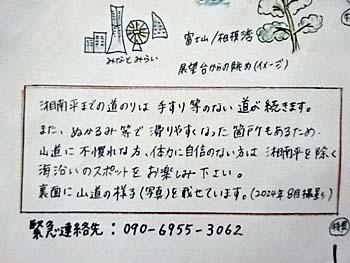 みなとみらい
富士山/相模湾
展望台からの眺め(イメージ)
湘南平までの道のりは 手すり等のない道が続きます。
また、ぬかるみ等で滑りやすくなった箇所もあるため、
山道に不慣れな方、体力に自信のない方は 湘南平を除く
海沿いのスポットをお楽しみ下さい。
裏面に山道の様子(写真)を載せています。(2024年8月撮影)
緊急連絡先:090-6955-3062